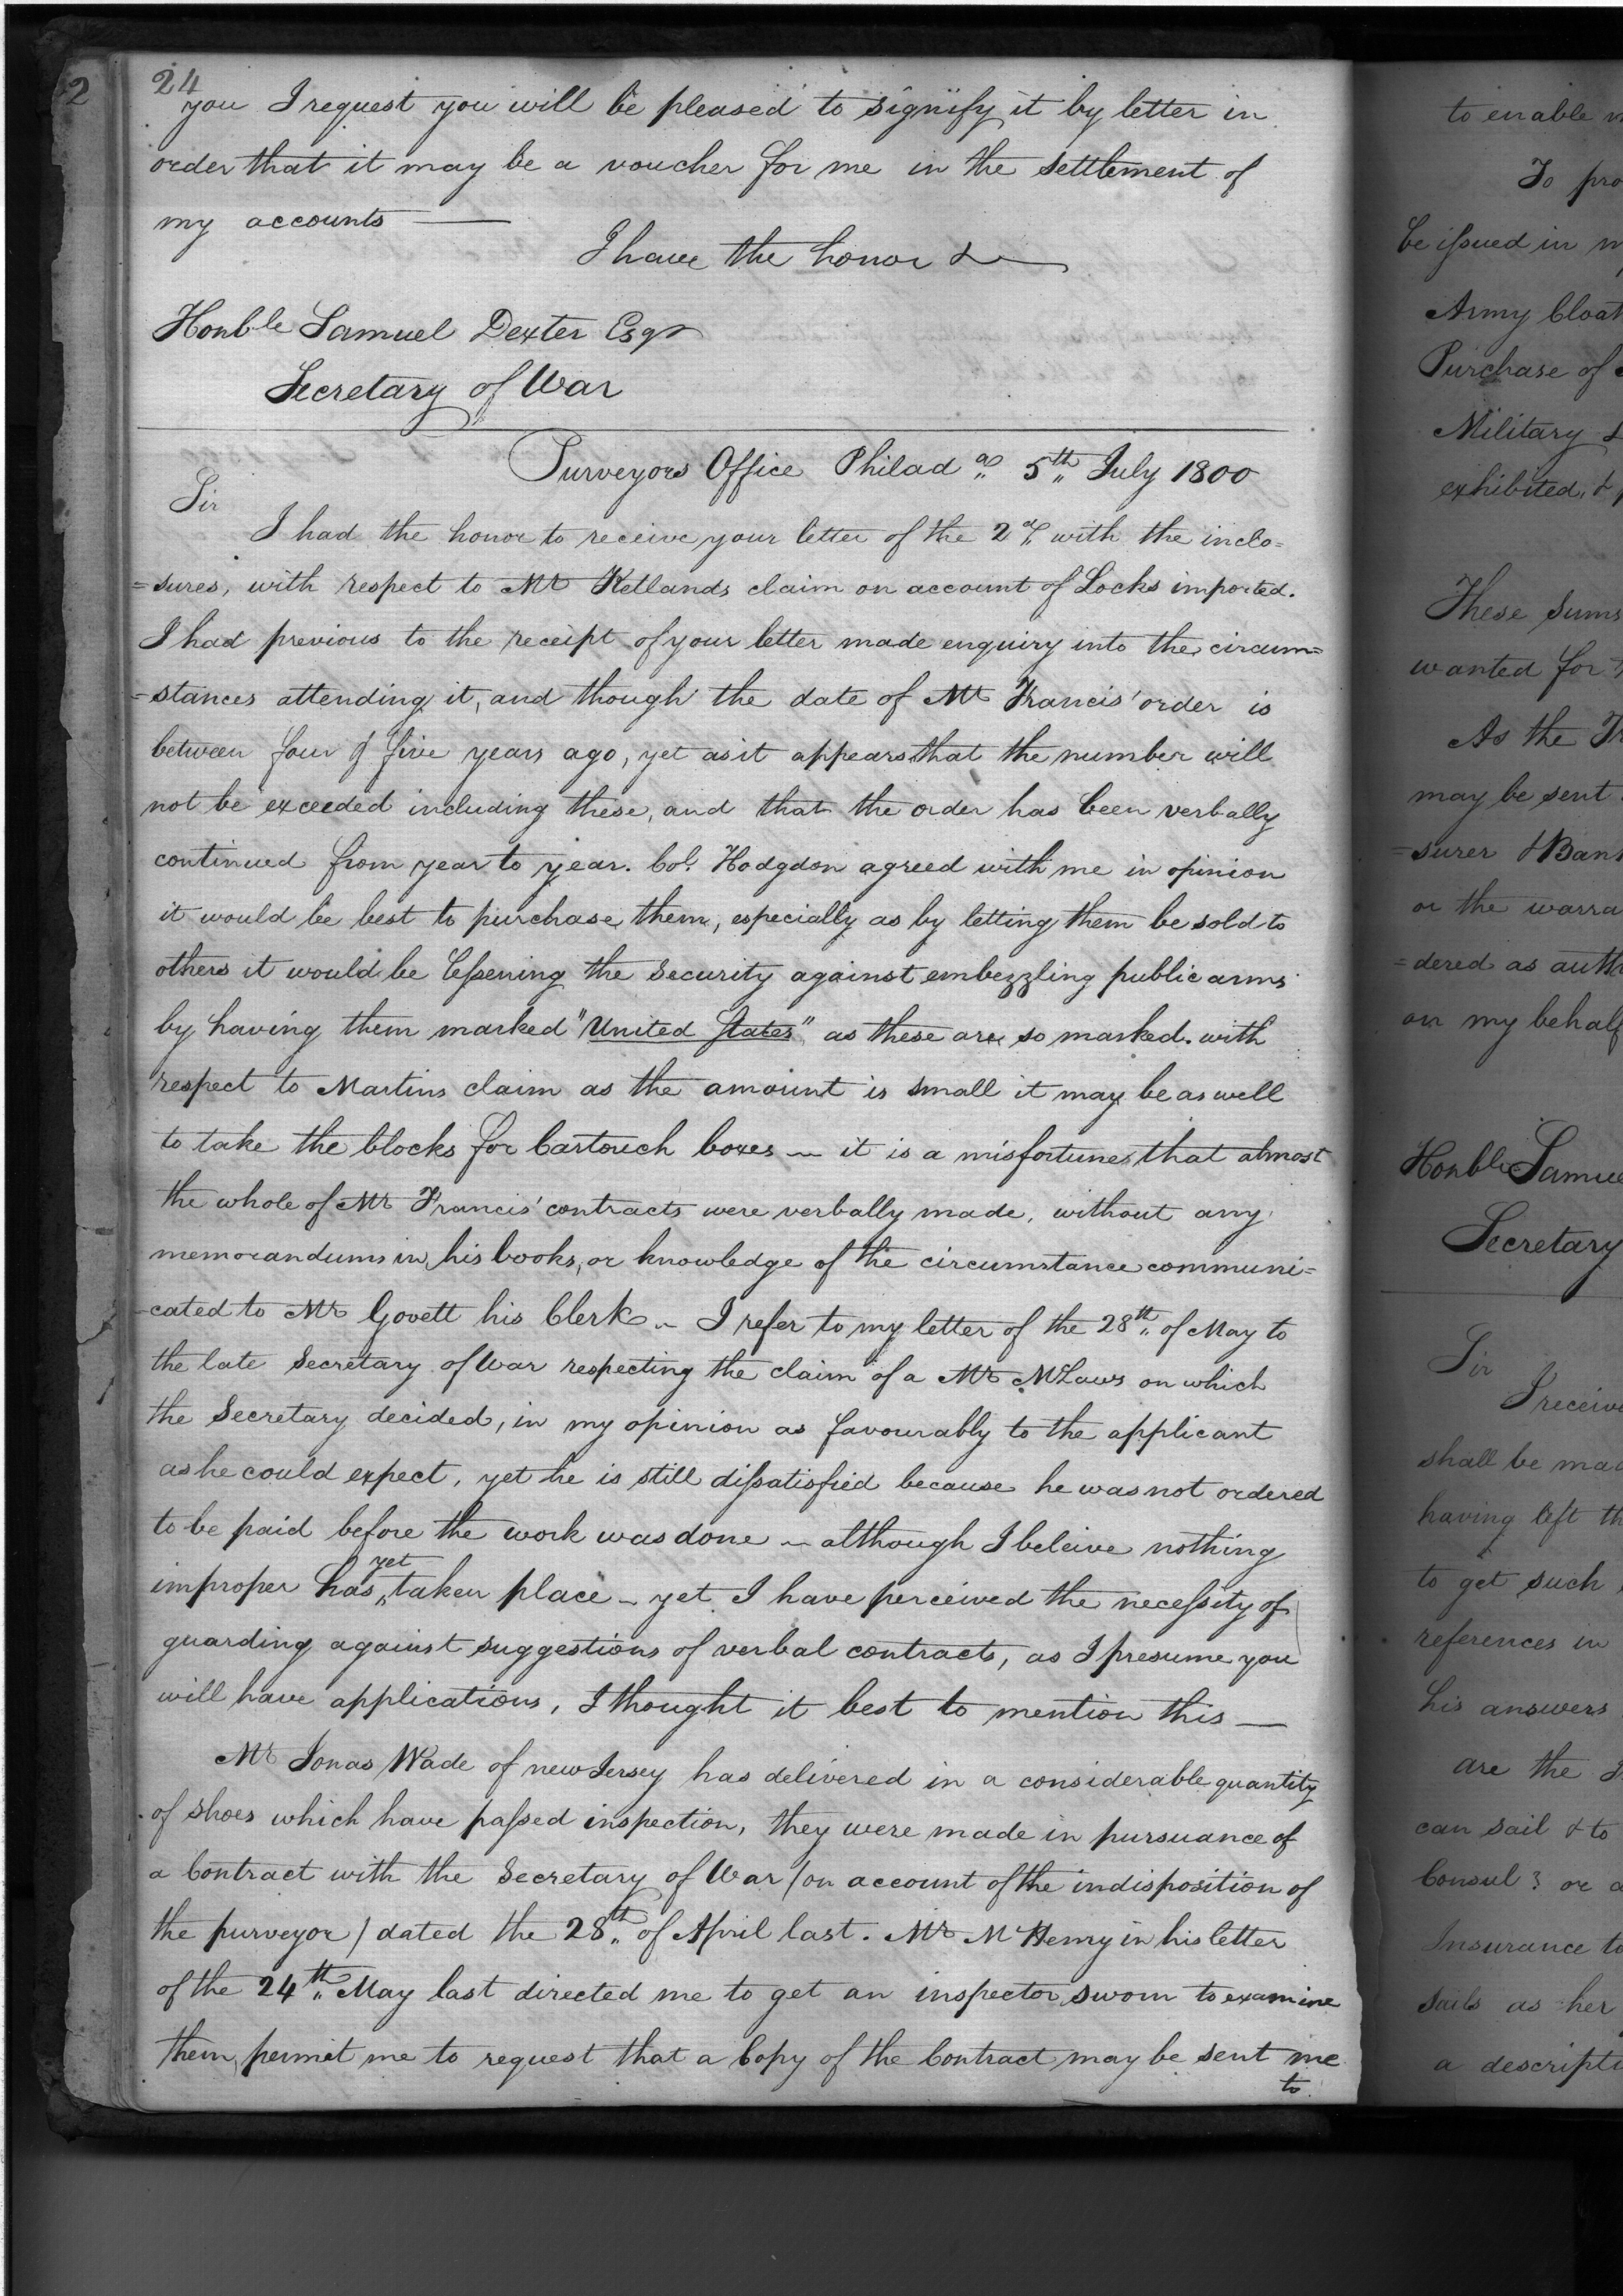 24
you I request you will be pleased to signify it by letter in
order that it may be a voucher for me in the settlement of
my accounts —
I have the honor &
Honble Samuel Dexter Esqr
Secretary of War
Purveyors Office Philada 5th July 1800
Sir
I had the honor to receive your letter of the 2d with the inclo=
=sures, with respect to Mr Ketlands claim on account of Locks imported.
I had previous to the receipt of your letter made enquiry into the circum=
=stances attending it, and though the date of Mr Francis' order is
between four & five years ago, yet as it appears that the number will
not be exceeded including these, and that the order has been verbally
continued from year to year. Col. Hodgdon agreed with me in opinion
it would be best to purchase them, especially as by letting them be sold to
others it would be lessening the security against embezzling public arms
by having them marked "United States" as these are so marked. with
respect to Martins claim as the amount is small it may be as well
to take the blocks for Cartouch boxes — it is a misfortune that almost
the whole of Mr Francis' contracts were verbally made, without any
memorandums in his books, or knowledge of the circumstance communi=
=cated to Mr Govett his Clerk — I refer to my letter of the 28th of May to
the late Secretary of War respecting the claim of a Mr McLaws on which
the Secretary decided, in my opinion as favourably to the applicant
as he could expect, yet he is still dissatisfied because he was not ordered
to be paid before the work was done — although I beleive nothing
improper has yet taken place — yet I have perceived the necessity of
guarding against suggestions of verbal contracts, as I presume you
will have applications, I thought it best to mention this —
Mr Jonas Wade of new Jersey has delivered in a considerable quantity
of shoes which have passed inspection, they were made in pursuance of
a Contract with the Secretary of War / on account of the indisposition of
the purveyor / dated the 28th of April last. Mr McHenry in his letter
of the 24th May last directed me to get an inspector sworn to examine
them, permit me to request that a Copy of the Contract may be sent me
to
2
to enable
To
be issued in
Army
Purchase of
Military &
exhibited, &
These Sums
wanted for
As the
may be sent
=surer &
or the
=dered as
on my behalf
Honble
Secretary
Sir
I
shall be
having left
to get such
references in
his answers
are the
can sail & to
Consul? or
Insurance to
sails as her
a